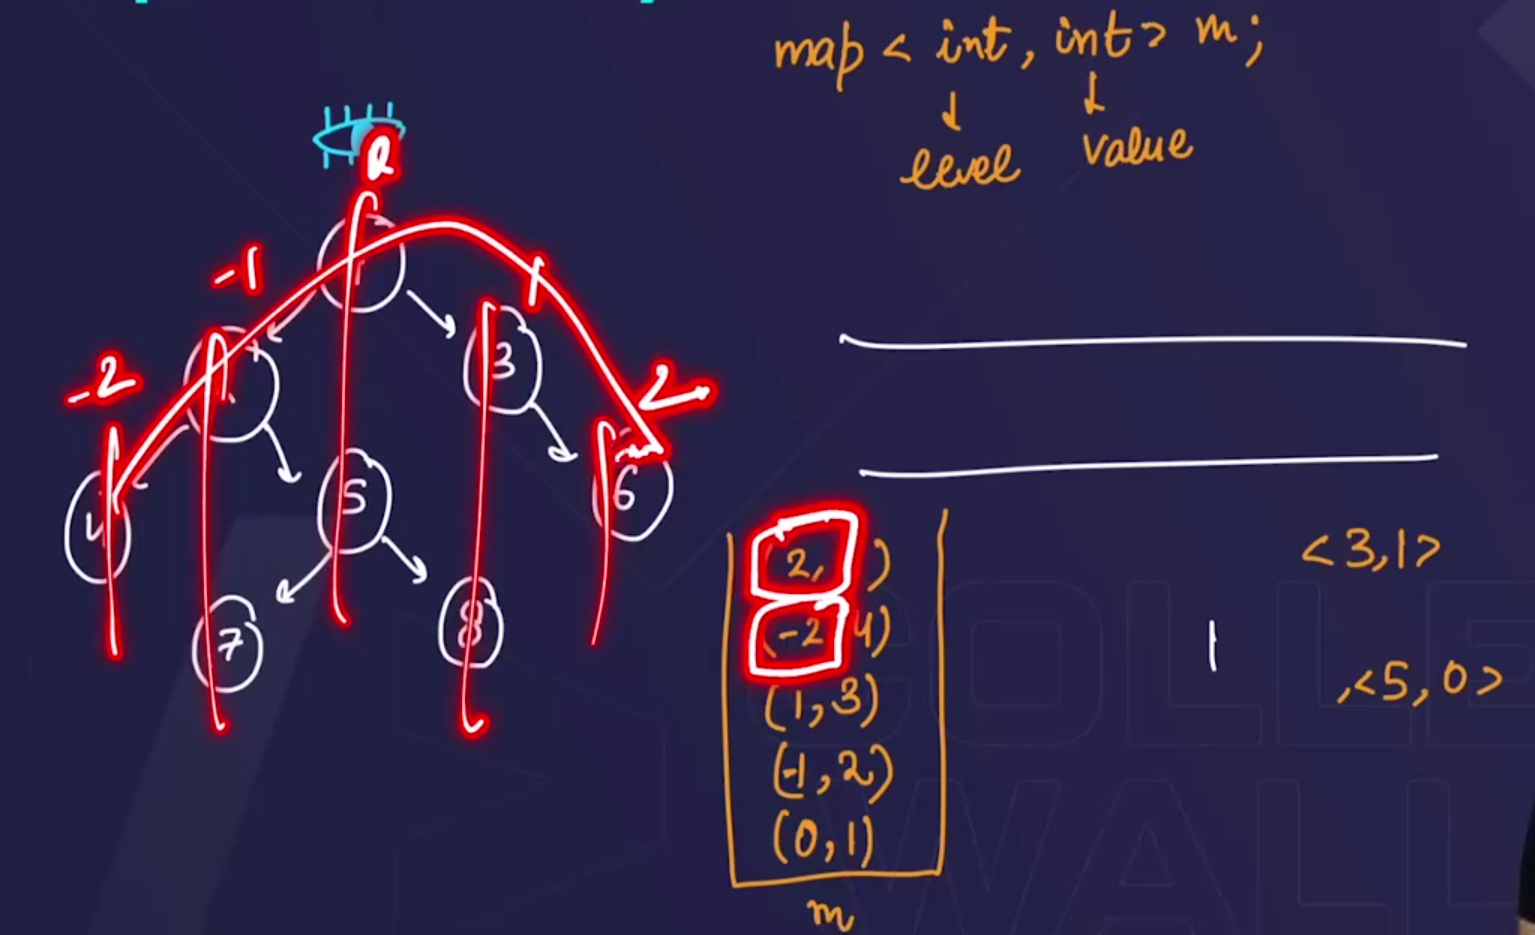 map < int, int > m;
level value
-1
1
-2
3
2
4
5
6
7
8
2, )
(-2 4)
(1, 3)
(-1, 2)
(0, 1)
m
<3, 1>
,<5, 0>
COLLE
WALL